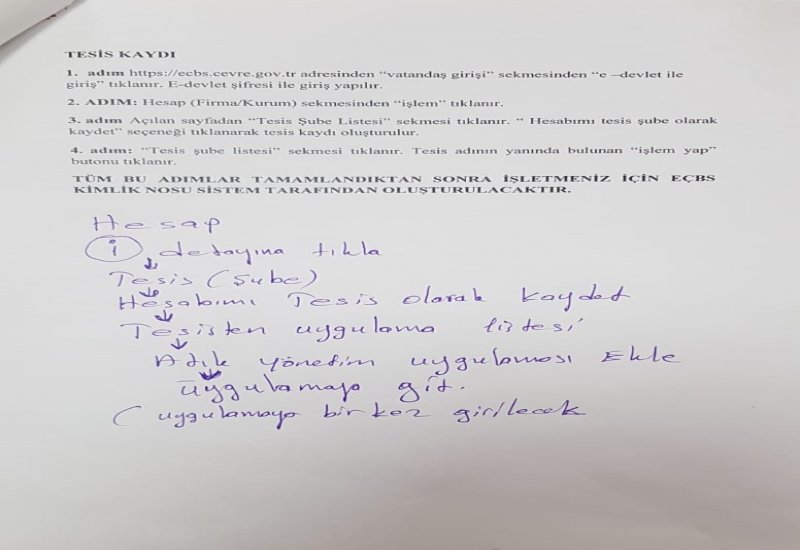 TESİS KAYDI
1. adım https://ecbs.cevre.gov.tr adresinden “vatandaş girişi” sekmesinden “e –devlet ile
giriş” tıklanır. E-devlet şifresi ile giriş yapılır.
2. ADIM: Hesap (Firma/Kurum) sekmesinden “işlem” tıklanır.
3. adım Açılan sayfadan “Tesis Şube Listesi” sekmesi tıklanır. “ Hesabımı tesis şube olarak
kaydet” seçeneği tıklanarak tesis kaydı oluşturulur.
4. adım: “Tesis şube listesi” sekmesi tıklanır. Tesis adının yanında bulunan “işlem yap”
butonu tıklanır.
TÜM BU ADIMLAR TAMAMLANDIKTAN SONRA İŞLETMENİZ İÇİN EÇBS
KİMLİK NOSU SİSTEM TARAFINDAN OLUŞTURULACAKTIR.
Hesap
i detayına tıkla
Tesis (Şube)
Hesabımı Tesis olarak kaydet
Tesisten uygulama listesi
Atık yönetim uygulaması Ekle
uygulamaya git.
( uygulamaya bir kez girilecek